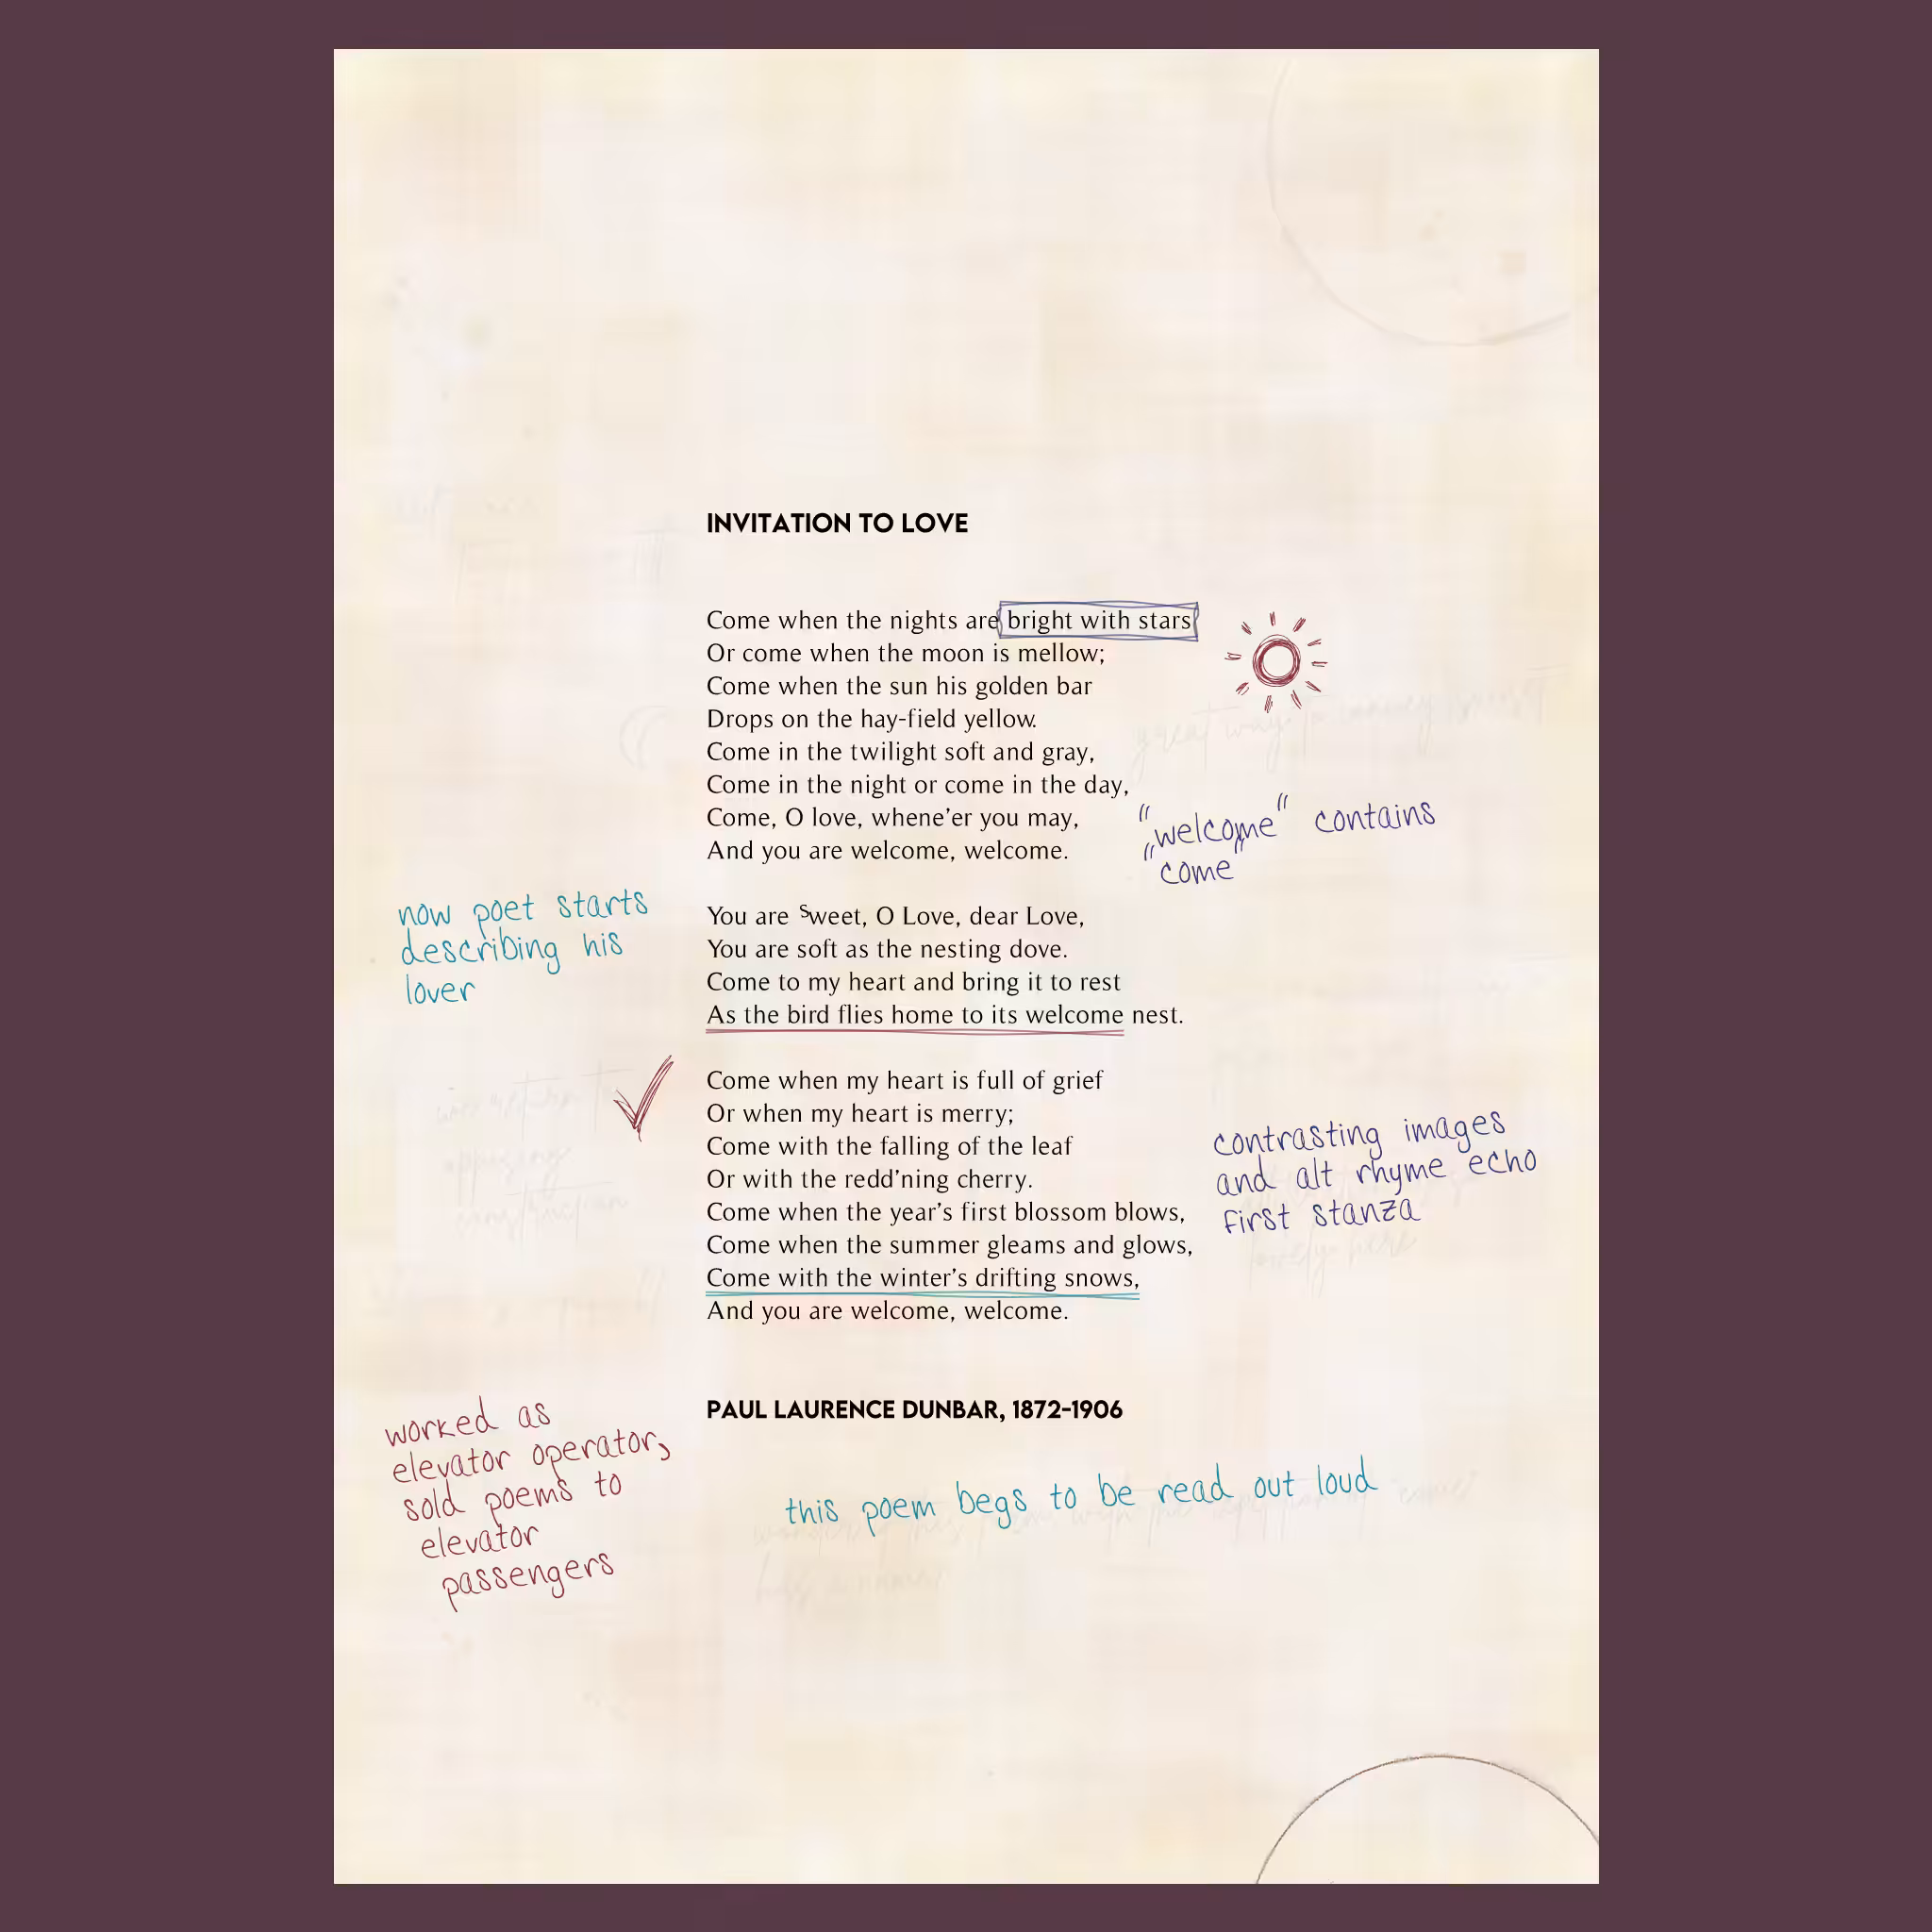 INVITATION TO LOVE
Come when the nights are bright with stars
Or come when the moon is mellow;
Come when the sun his golden bar
Drops on the hay-field yellow.
Come in the twilight soft and gray,
Come in the night or come in the day,
Come, O love, whene’er you may,
And you are welcome, welcome.
"welcome" contains
"come"
You are Sweet, O Love, dear Love,
You are soft as the nesting dove.
Come to my heart and bring it to rest
As the bird flies home to its welcome nest.
now poet starts
describing his
lover
Come when my heart is full of grief
Or when my heart is merry;
Come with the falling of the leaf
Or with the redd’ning cherry.
Come when the year’s first blossom blows,
Come when the summer gleams and glows,
Come with the winter’s drifting snows,
And you are welcome, welcome.
contrasting images
and alt rhyme echo
first stanza
PAUL LAURENCE DUNBAR, 1872-1906
worked as
elevator operator,
sold poems to
elevator
passengers
this poem begs to be read out loud